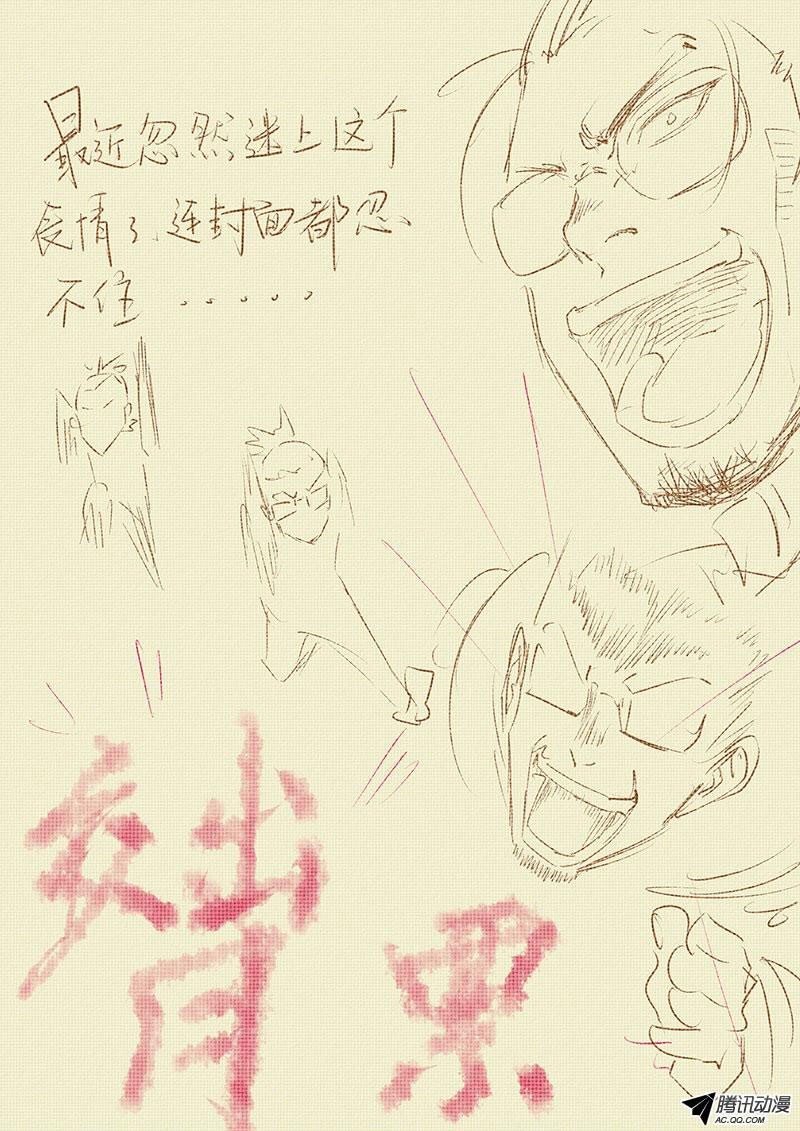 最近忽然迷上这个
表情了,连封面都忍
不住.....
腾讯动漫
AC.QQ.COM